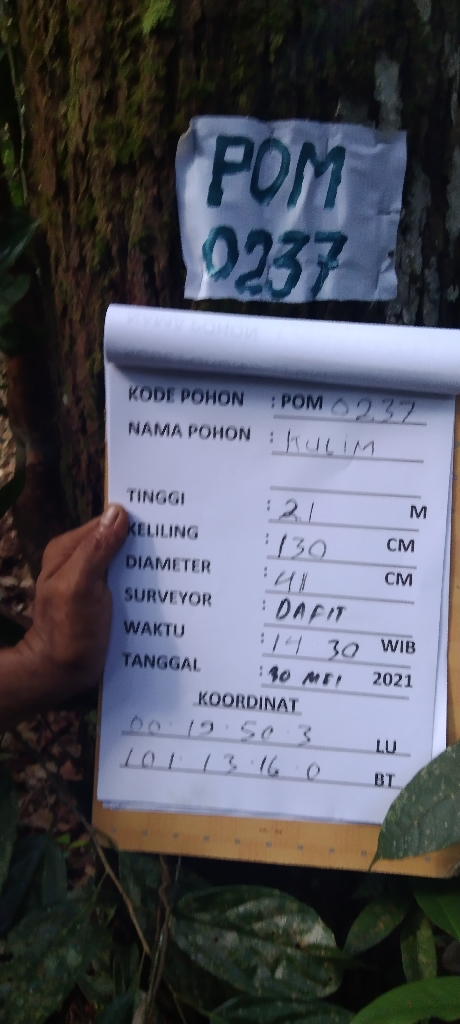 POM
0237
KODE POHON : POM 0237
NAMA POHON : KULIM
TINGGI : 21 M
KELILING : 130 CM
DIAMETER : 41 CM
SURVEYOR : DAFIT
WAKTU : 14 30 WIB
TANGGAL : 30 MEI 2021
KOORDINAT
00 · 19 · 50 · 3 LU
101 · 13 · 16 · 0 BT